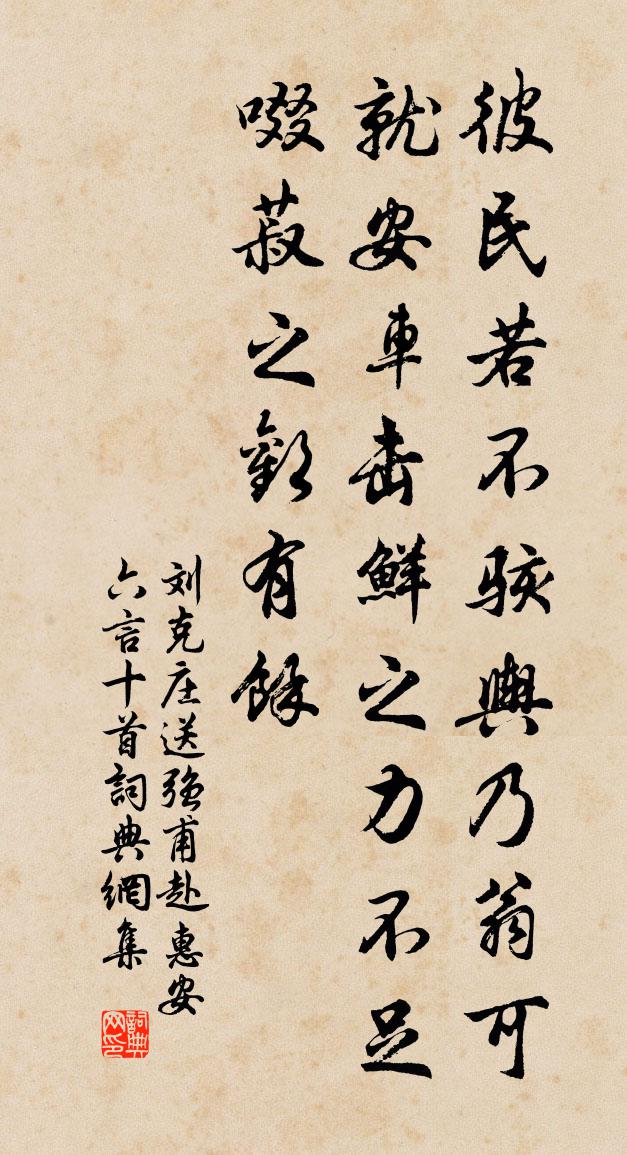 彼民若不駭輿乃翁可
就安車击鮮之力不足
啜菽之歡有餘
刘克庄送强甫赴惠安
六言十首詞典網集
詞典网印